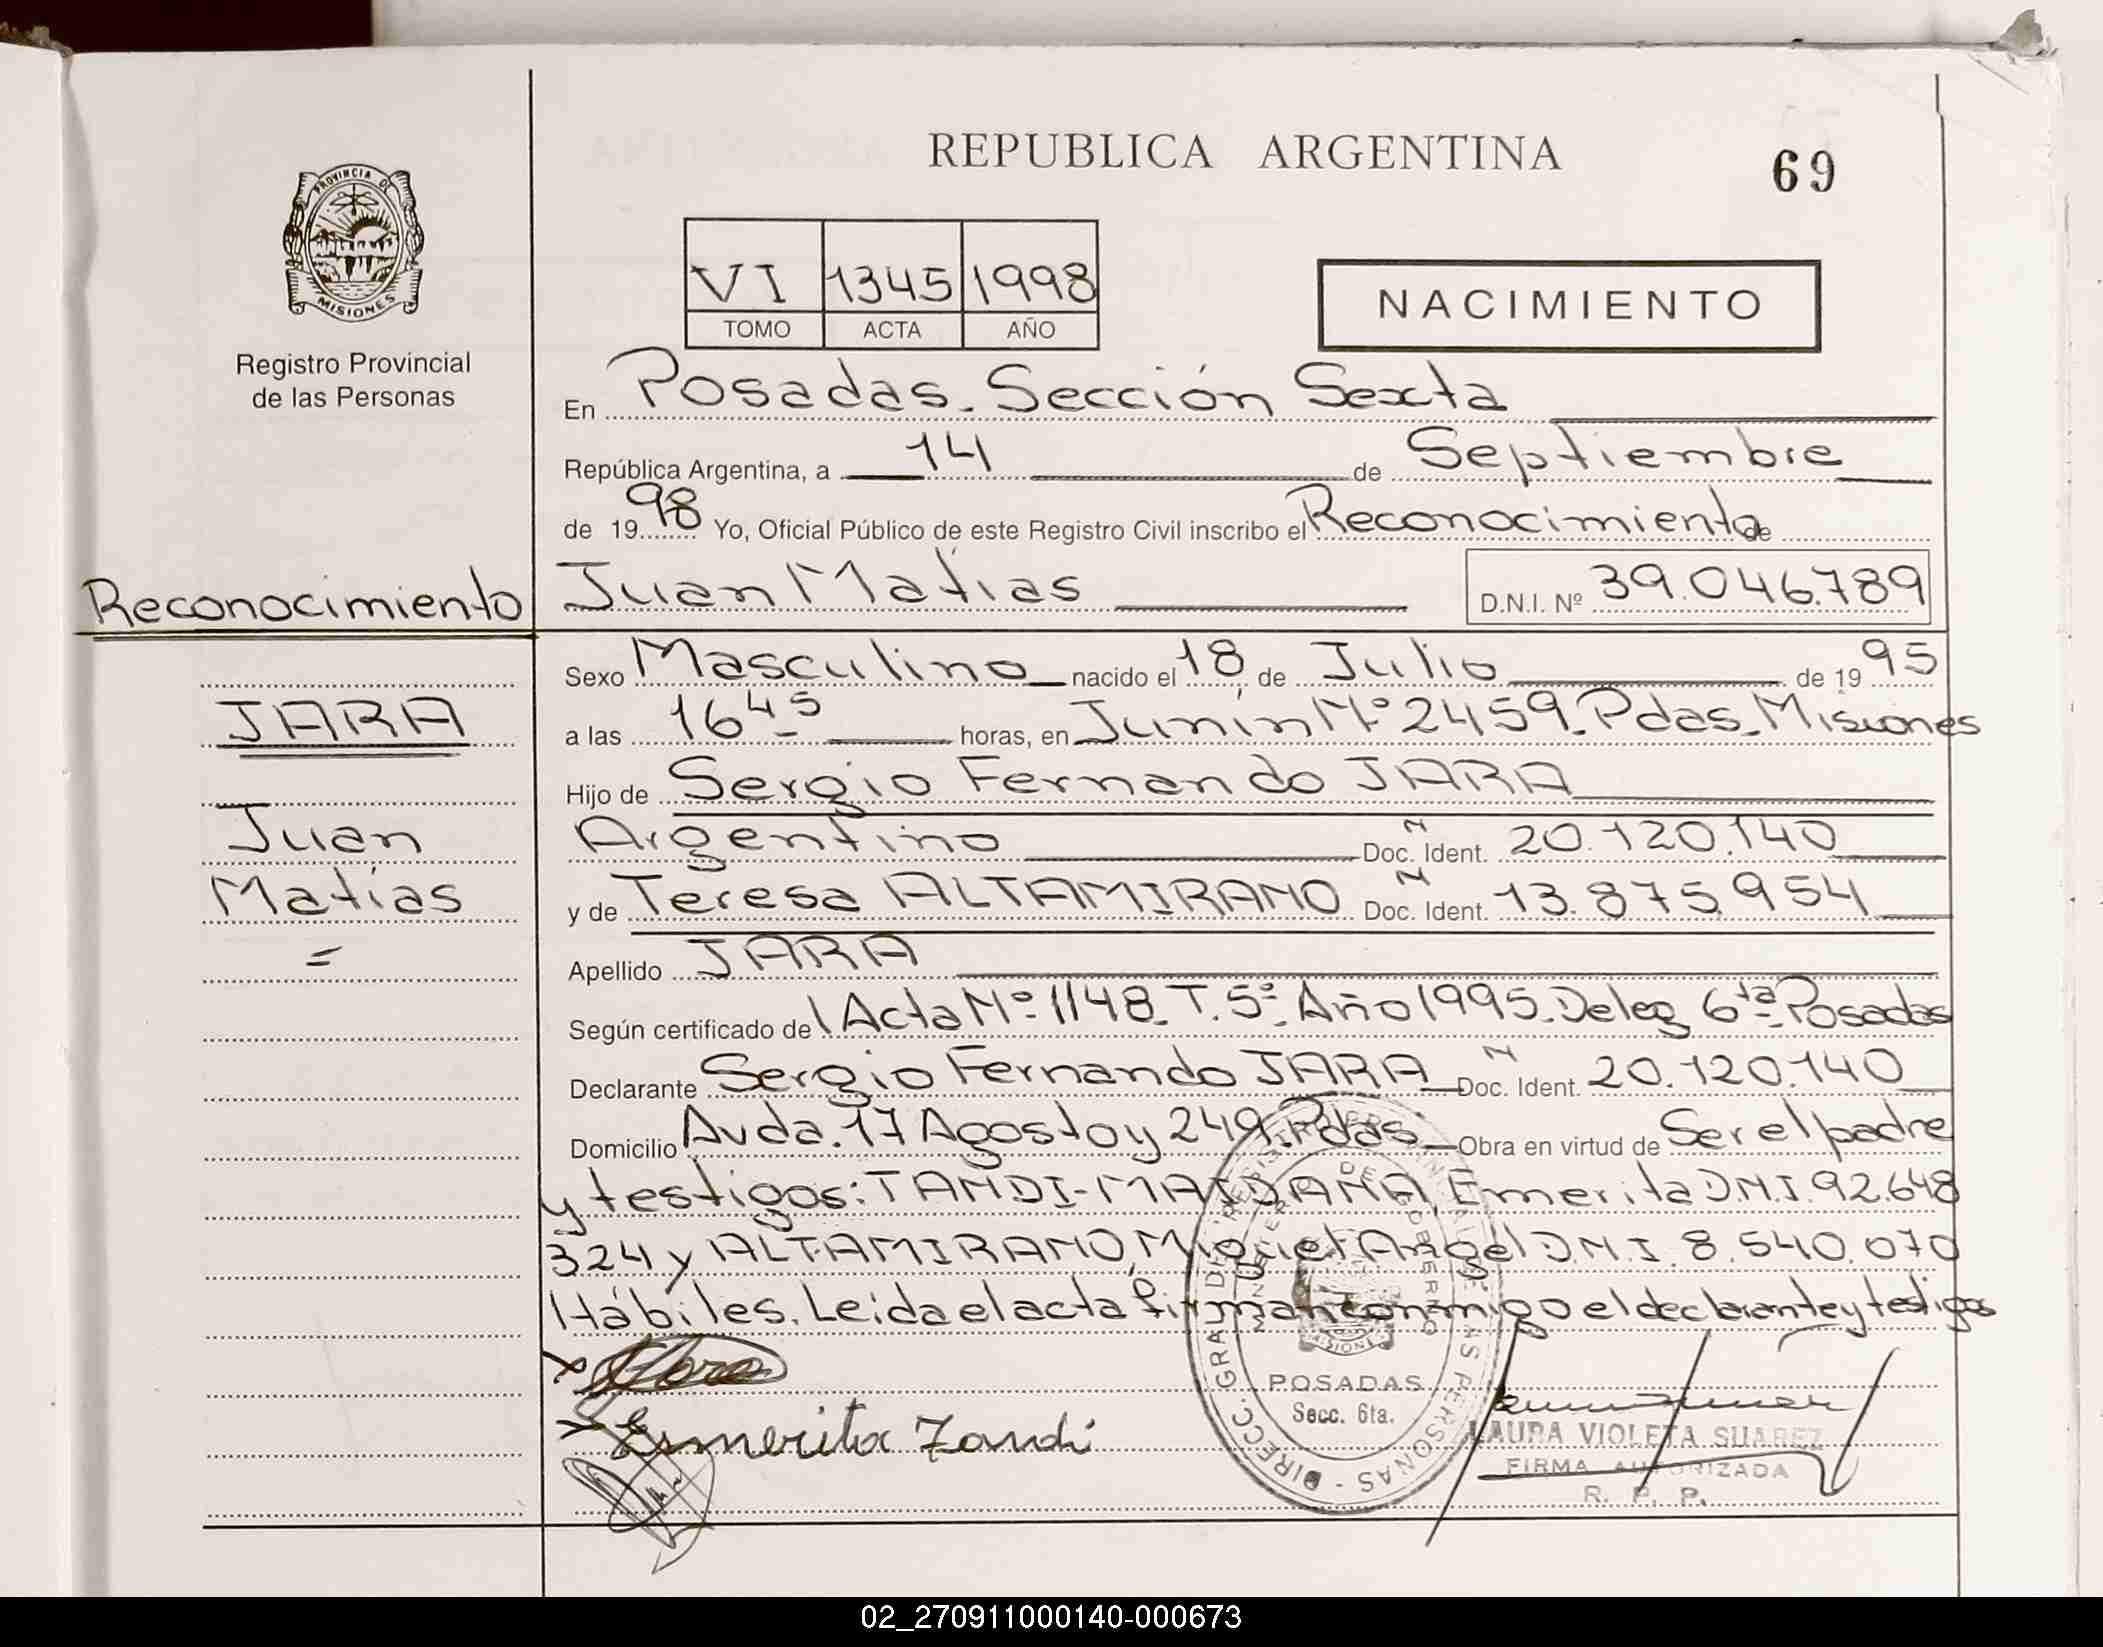 REPUBLICA ARGENTINA
69
PROVINCIA DE
MISIONES
Registro Provincial
de las Personas
VI 1345 1998
TOMO ACTA AÑO
NACIMIENTO
En Posadas. Sección Sexta
República Argentina, a 14 de Septiembre
de 1998 Yo, Oficial Público de este Registro Civil inscribo el Reconocimiento de
Reconocimiento
Juan Matías D.N.I. Nº 39.046.789
Sexo Masculino nacido el 18 de Julio de 1995
JARA
a las 16 45 horas, en Junín Nº 2459. Pdas. Misiones
Hijo de Sergio Fernando JARA
Juan
Argentino Doc. Ident. N 20.120.140
Matías
y de Teresa ALTAMIRANO Doc. Ident. N 13.875.954
=
Apellido JARA
Según certificado de l Acta Nº 1148. T. 5º Año 1995. Deleg 6ta Posadas
Declarante Sergio Fernando JARA Doc. Ident. N 20.120.140
Domicilio Avda. 17 Agosto y 249. Pdas Obra en virtud de Ser el padre
y testigos: TANDI-MAIDANA, Esmerita D.N.I. 92.648
324 y ALTAMIRANO, Miguel Angel D.N.I. 8.540.070
Hábiles. Leída el acta firman conmigo el declarante y testigos
x
Esmerita Tandi
DIRECC. GRAL DE REGISTRO PROVINCIAL DE LAS PERSONAS
MINISTERIO DE GOBIERNO
POSADAS
Secc. 6ta.
LAURA VIOLETA SUAREZ
FIRMA AUTORIZADA
R. P. P.
02_270911000140-000673